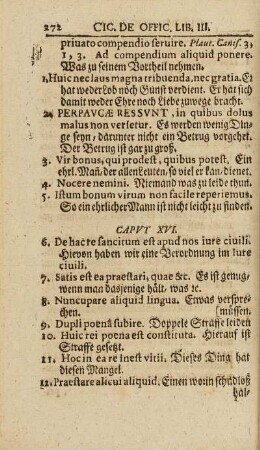 272 CIC. DE OFFIC. LIB. III.
priuato compendio seruire. Plaut. Capt. 3,
1, 3. Ad compendium aliquid ponere.
Was zu seinem Vortheil nehmen.
1, Huic nec laus magna tribuenda, nec gratia. Er
hat weder Lob noch Gunst verdient. Er hat sich
damit weder Ehre noch Liebe zuwege bracht.
2. PERPAVCÆ RES SVNT, in quibus dolus
malus non versetur. Es werden wenig Din-
ge seyn, darunter nicht ein Betrug vorgehet.
Der Betrug ist gar zu groß.
3. Vir bonus, qui prodest, quibus potest. Ein
ehrl. Mañ, der allen Leuten, so viel er kan, dienet.
4. Nocere nemini. Niemand was zu leide thun.
5. Istum bonum virum non facile reperiemus.
So ein ehrlicher Mann ist nicht leicht zu finden.
CAPVT XVI.
6. De hac re sancitum est apud nos iure ciuili.
Hievon haben wir eine Verordnung im Iure
ciuili.
7. Satis est ea praestari, quae &c. Es ist genug,
wenn man dasjenige hält, was &c.
8. Nuncupare aliquid lingua. Etwas verspre-
chen. [müssen.
9. Dupli poenã subire. Doppelte Straffe leiden
10. Huic rei poena est constituta. Hierauf ist
Straffe gesetzt.
11. Hoc in ea re inest vitii. Dieses Ding hat
diesen Mangel.
12. Praestare alicui aliquid. Einen worin schadloß
hal-